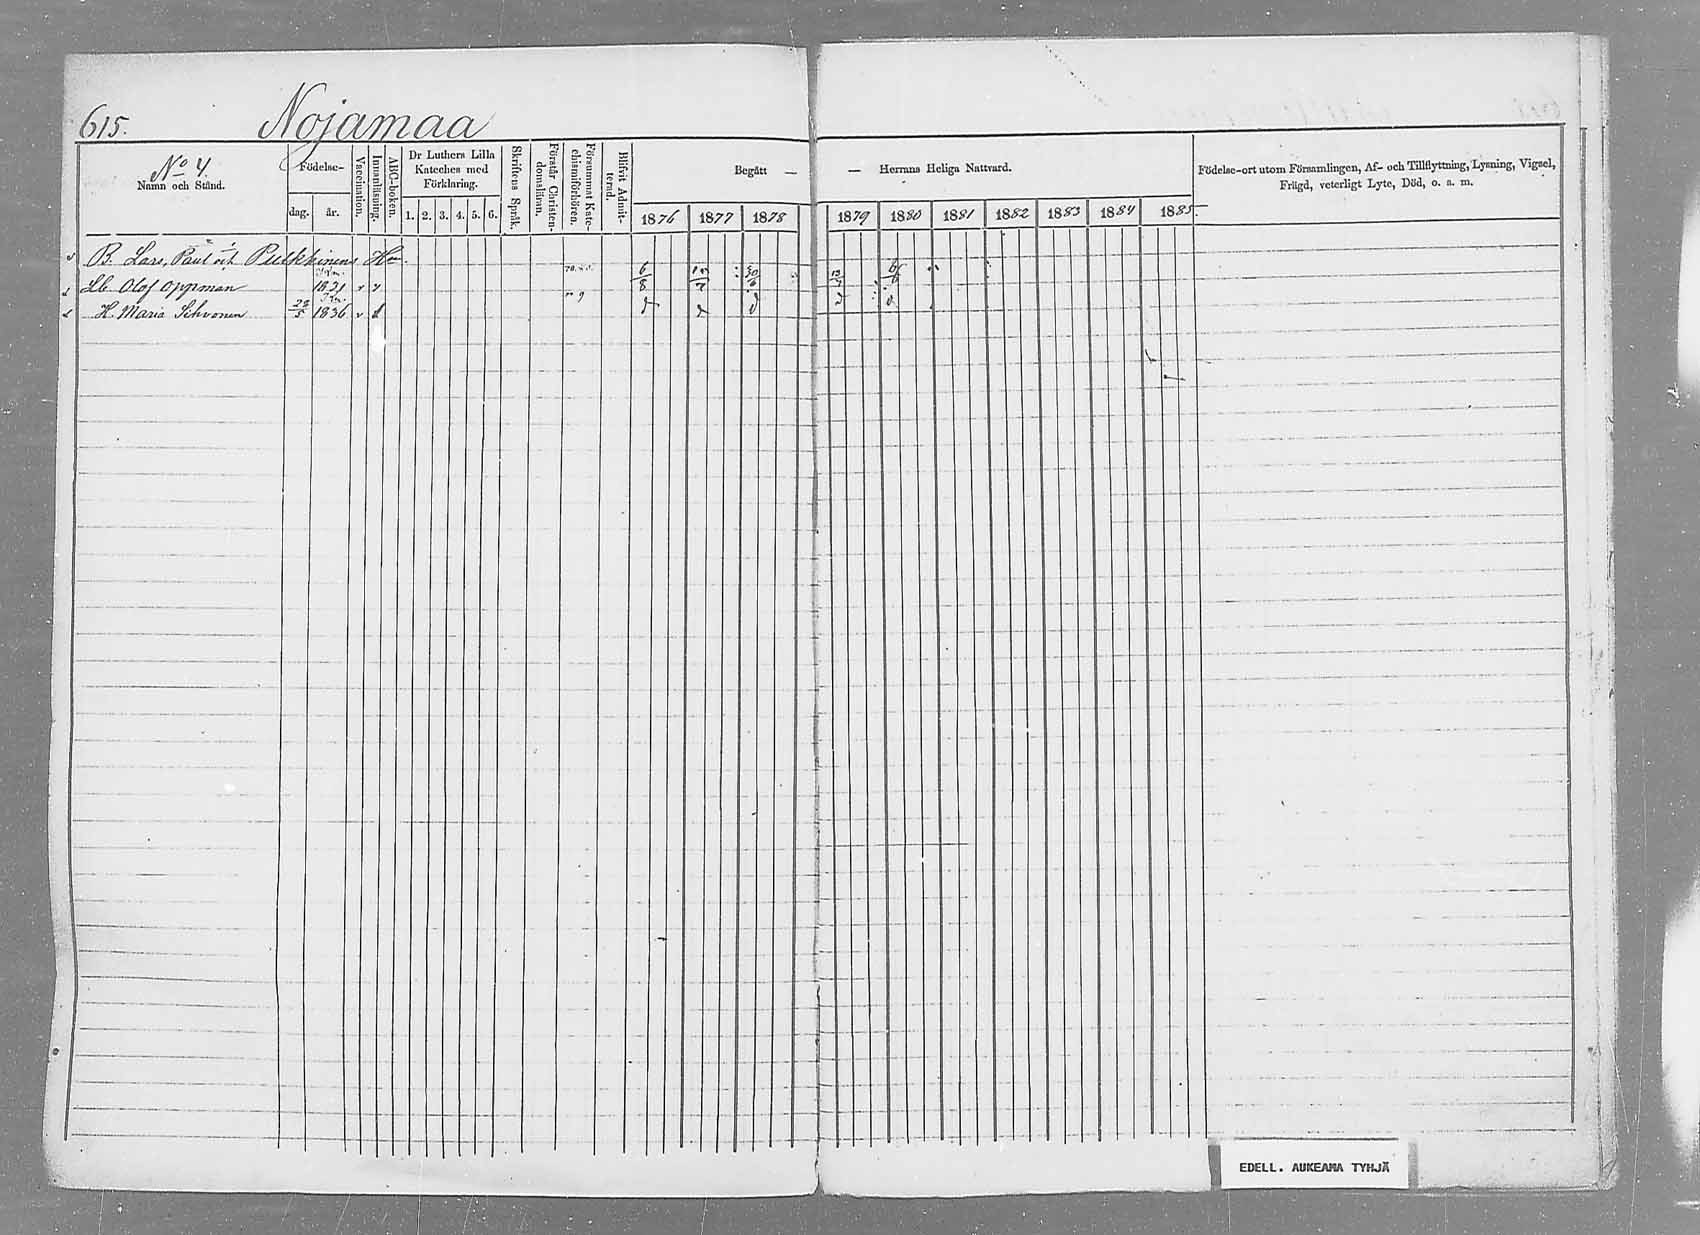 615. Nojamaa
No 4.
Namn och Stånd.
Födelse-
dag. år.
Vaccination.
Innanläsning.
ABC-boken.
Dr Luthers Lilla Kateches med Förklaring.
1. 2. 3. 4. 5. 6.
Skriftens Språk.
Förstår Christendomsläran.
Försummat Katechismiförhören.
Blifvit Admitterad.
Begått — — Herrans Heliga Nattvard.
1876 1877 1878 1879 1880 1881 1882 1883 1884 1885
Födelse-ort utom Församlingen, Af- och Tillflyttning, Lysning, Vigsel,
Frägd, veterligt Lyte, Död, o. s. m.
B. Lars, Paul och Pulkkinens
Lb. Olof Oppman 1831 v v 6/8
H. Maria Sihvonen 1836 v
EDELL. AUKEAMA TYHJÄ